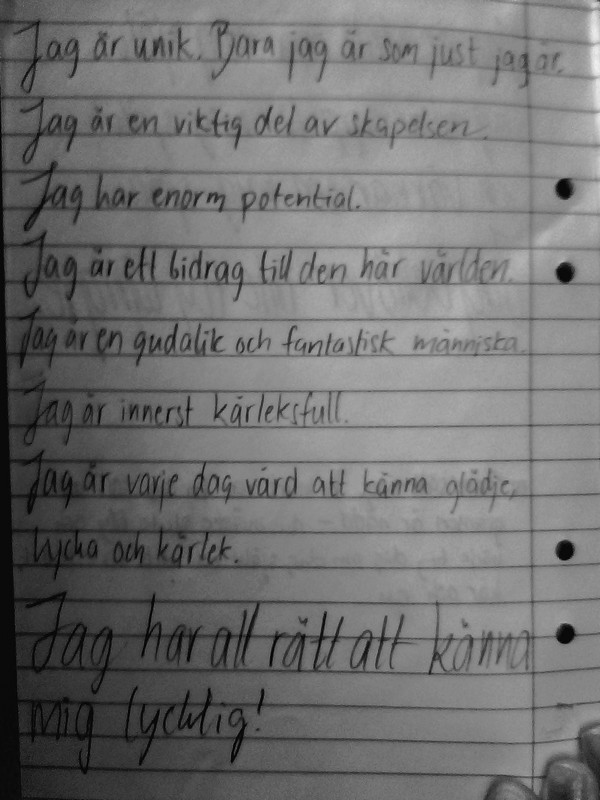 Jag är unik. Bara jag är som just jag är.
Jag är en viktig del av skapelsen.
Jag har enorm potential.
Jag är ett bidrag till den här världen.
Jag är en gudalik och fantastisk människa.
Jag är innerst kärleksfull.
Jag är varje dag värd att känna glädje,
lycka och kärlek.
Jag har all rätt att känna
mig lycklig!